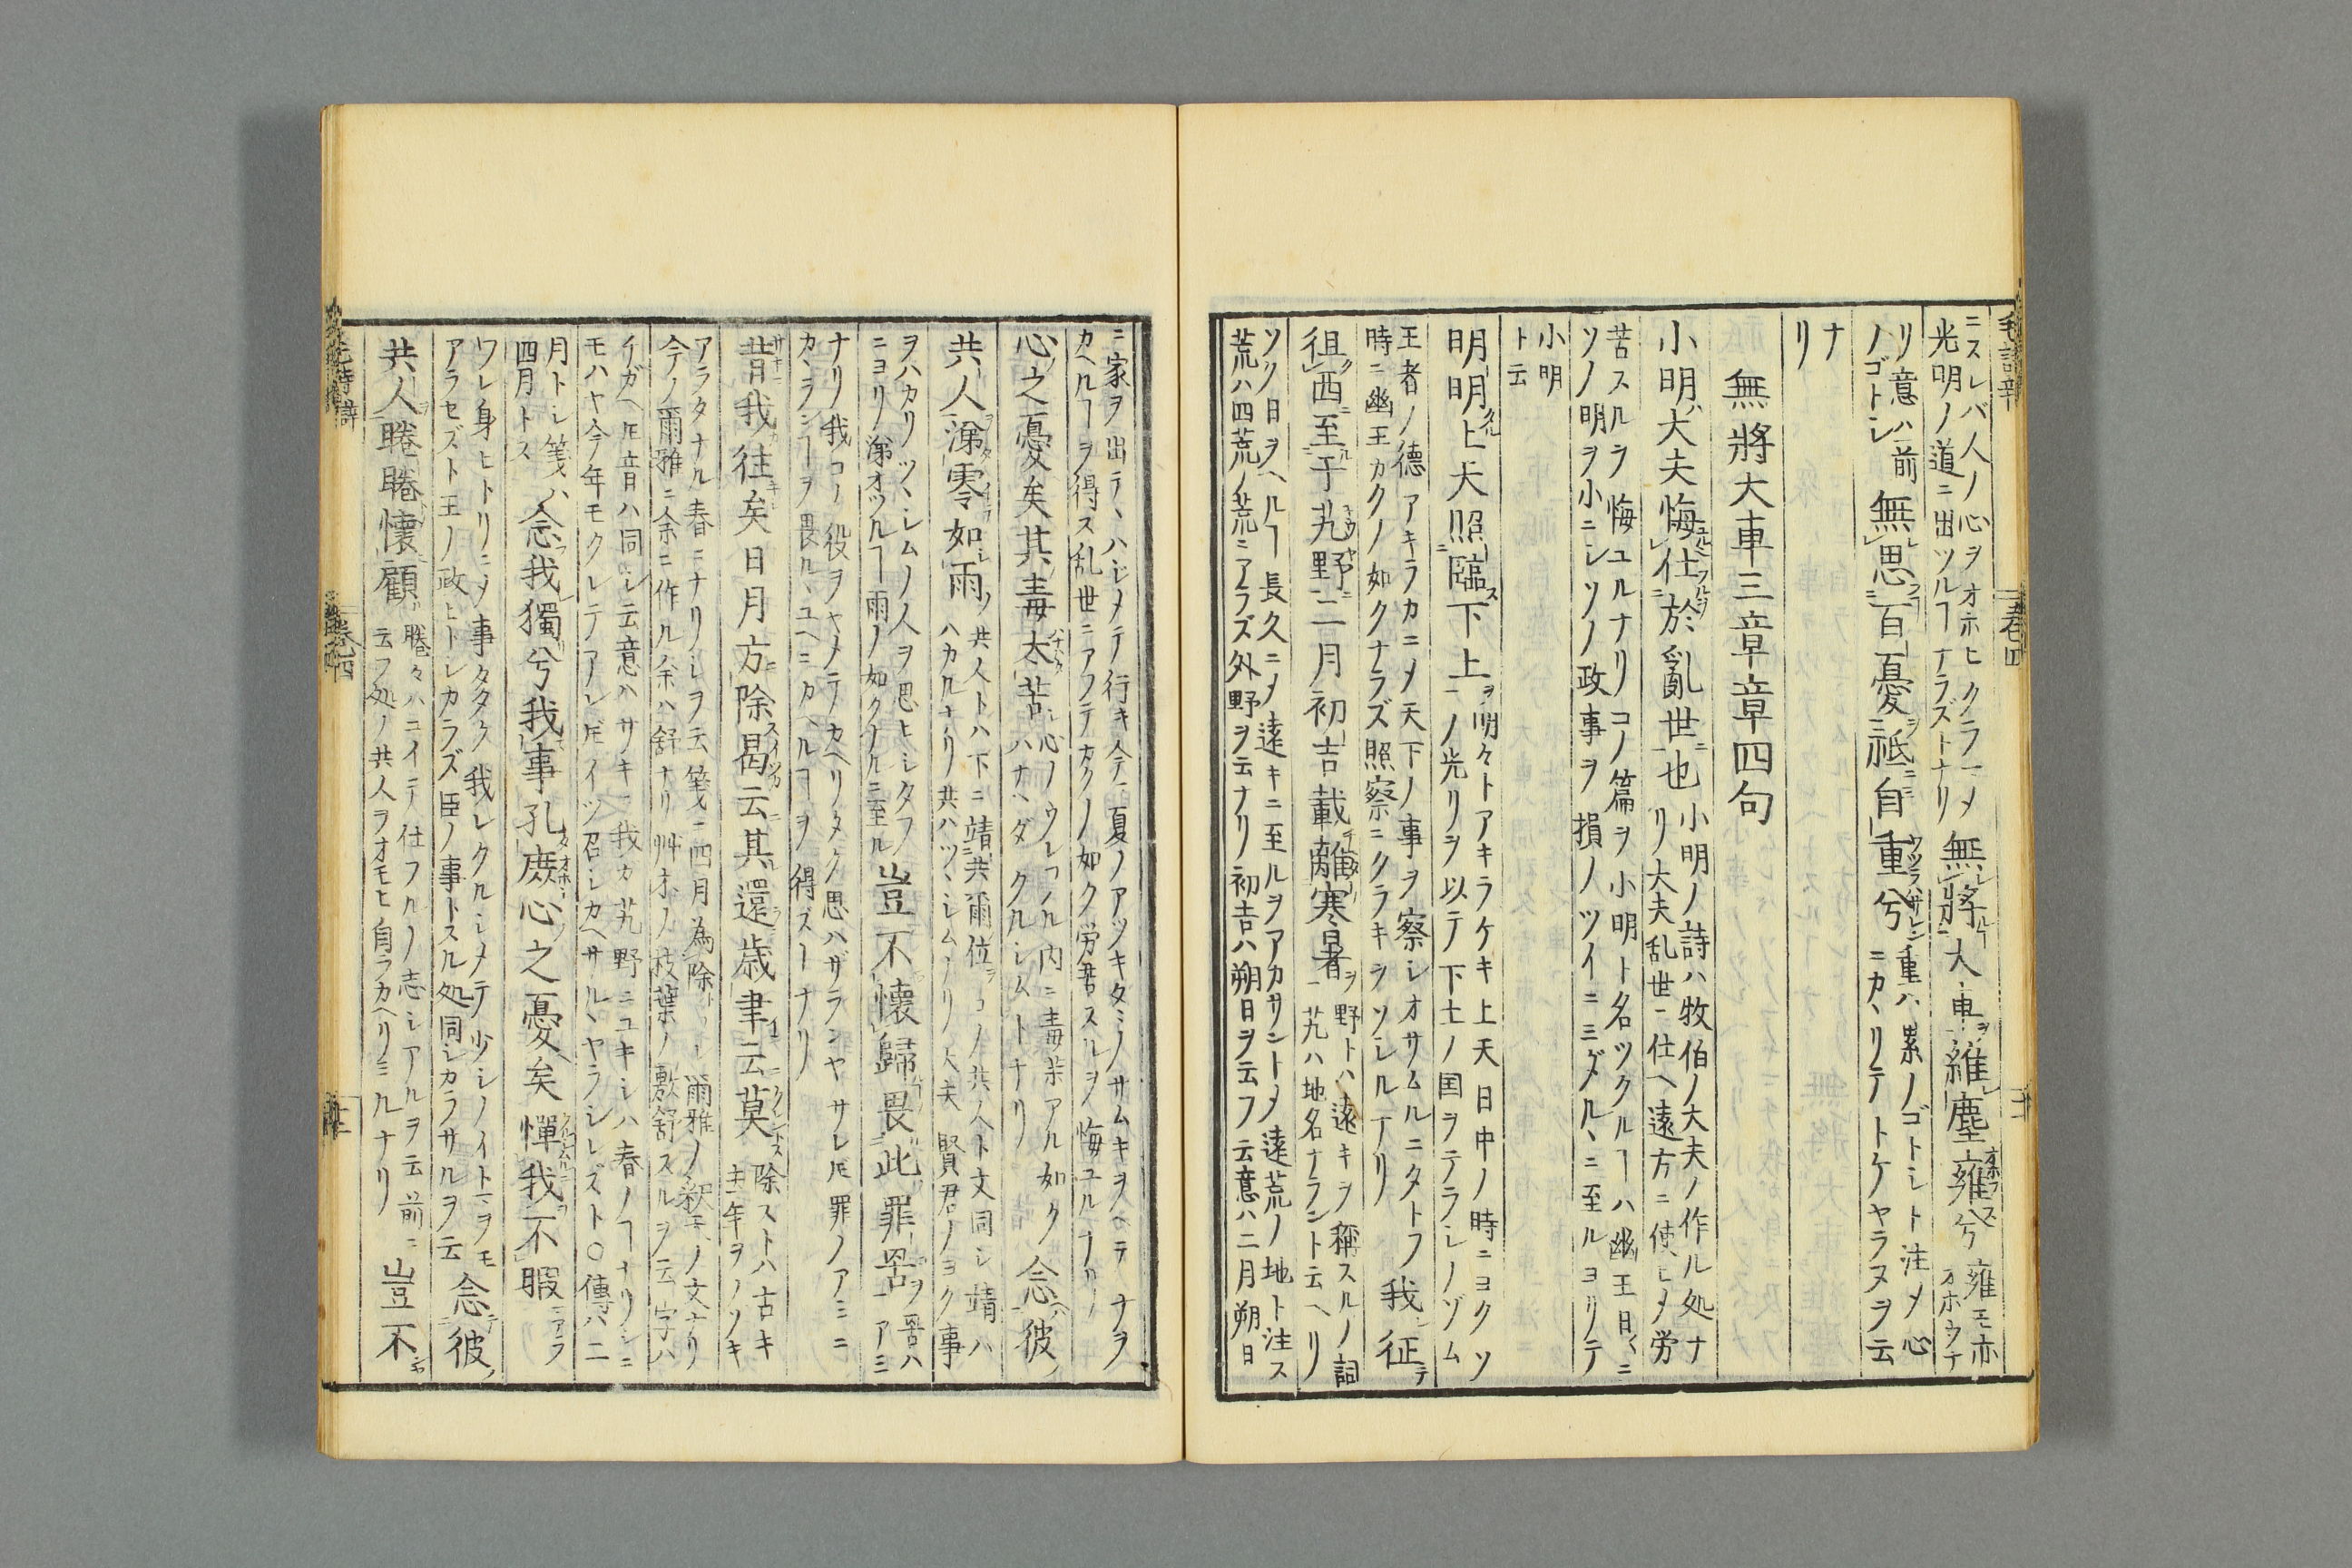 ニスレバ人ノ心ヲオホヒクラマメ
光明ノ道ニ出ツルヿナラズトナリ
無將大車維塵雍兮
雍モ亦
オホウナ
リ意ハ前
ノゴトシ
無思百憂祗自重兮
重ハ累ノゴトシト注メ心
ニカヽリテトケヤラヌヲ云
ナ
リ
無將大車三章章四句
小明大夫悔仕於亂世也
小明ノ詩ハ牧伯ノ大夫ノ作ル処ナ
リ大夫乱世ニ仕ヘ遠方ニ使シメ労
苦スルヲ悔ユルナリコノ篇ヲ小明ト名ツクルヿハ幽王日〻ニ
ソノ明ヲ小ニシソノ政事ヲ損ノツイニミダルヽニ至ルヨリテ
小明
ト云
明明上天照臨下土
明々トアキラケキ上天日中ノ時ニヨクソ
ノ光リヲ以テ下土ノ国ヲテラシノゾム
王者ノ德アキラカニメ天下ノ事ヲ察シオサムルニタトフ
時ニ幽王カクノ如クナラズ照察ニクラキヲソシルナリ
我征
徂西至于艽野二月初吉載離寒暑
野トハ遠キヲ稱スルノ詞
艽ハ地名ナラント云ヘリ
ソノ日ヲヘルヿ長久ニメ遠キニ至ルヲアカサントメ遠荒ノ地ト注ス
荒ハ四荒ノ荒ニアラズ外野ヲ云ナリ初吉ハ朔日ヲ云フ云意ハ二月朔日
ニ家ヲ出テヽハジメテ行キ今夏ノアツキタミノサムキヲヘテナヲ
カヘルヿヲ得ス乱世ニアフテカクノ如ク労苦スルヲ悔ユルナリ
心之憂矣其毒太苦
心ノウレフル内ニ毒薬アル如ク
ハナハダクルシムトナリ
念彼
共人涕零如雨
共人トハ下ニ靖共爾位コノ共人ト文同シ靖ハ
ハカルナリ共ハツヽシムナリ大夫賢君ノヨク事
ヲハカリツヽシムノ人ヲ思ヒシタフ
ニヨリ涕オツルヿ雨ノ如クナルニ至ル
豈不懷歸畏此罪罟
罟ハ
アミ
ナリ我コノ役ヲヤメテカヘリタク思ハザランヤサレ𪜈罪ノアミニ
カヽランヿヲ畏ルヽユヘニカヘルヿヲ得ズトナリ
昔我往矣日月方除曷云其還歲聿云莫
除ストハ古キ
年ヲノソキ
アラタナル春ニナリシヲ云箋ニ四月為除ト爾雅ノ釈天ノ文ナリ
今ノ爾雅ニ余ニ作ル余ハ舒ナリ艸木ノ枝葉ノ敷舒スルヲ云字ハ
イガヘ𪜈音ハ同シ云意ハサキニ我カ艽野ニユキシハ春ノヿナリシニ
モハヤ今年モクレテアレ𪜈イツ召シカヘサルヽヤラシレズト○傳ハ二
月トシ箋ハ
四月トス
念我獨兮我事孔庶心之憂矣憚我不暇
ワレ身ヒトリニメ事多ク我レクルシメテ少シノイトマヲモ
アラセズト王ノ政ヒトシカラズ臣ノ事トスル処同シカラサルヲ云
念彼
共人睠睠懷顧
睠々ハニイテ仕フルノ志シアルヲ云前ニ
云フ処ノ共人ヲオモヒ自ラカヘリミルナリ
豈不